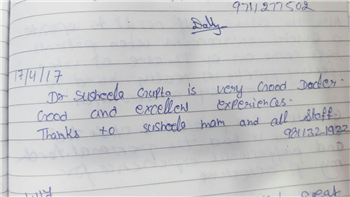 9711277502
Daily
17/4/17
Dr Susheela Gupta is very Good Doctor.
Good and excellent experiences.
Thanks to susheela mam and all staff.
9811321922
great